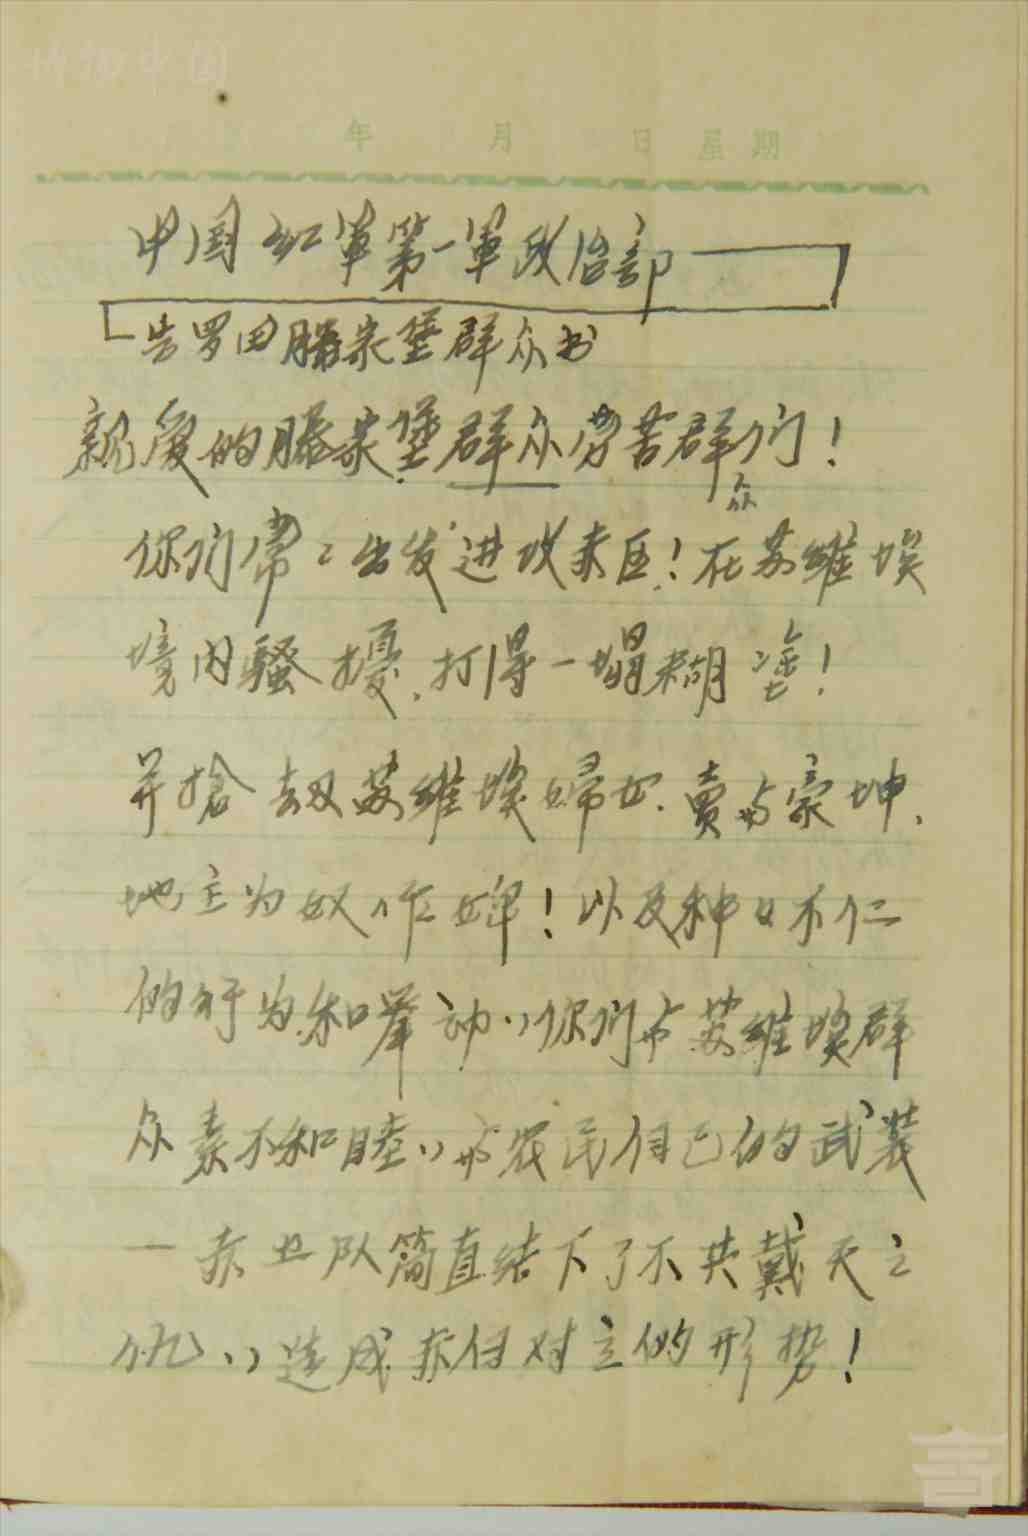 年 月 日 星期
中国红軍第一軍政治部
告罗田滕家堡群众书
親爱的滕家堡群众劳苦群众们！
你们常々出发进攻赤区！在苏維埃
境内騷擾，打得一塌糊塗！
并搶劫苏維埃婦女，賣与豪坤、
地主为奴作婢！以及种々不仁
的行为和举动，你们与苏維埃群
众素不和睦，与农民自己的武装
一赤卫队简直结下了不共戴天之
仇，造成赤白对立的形势！